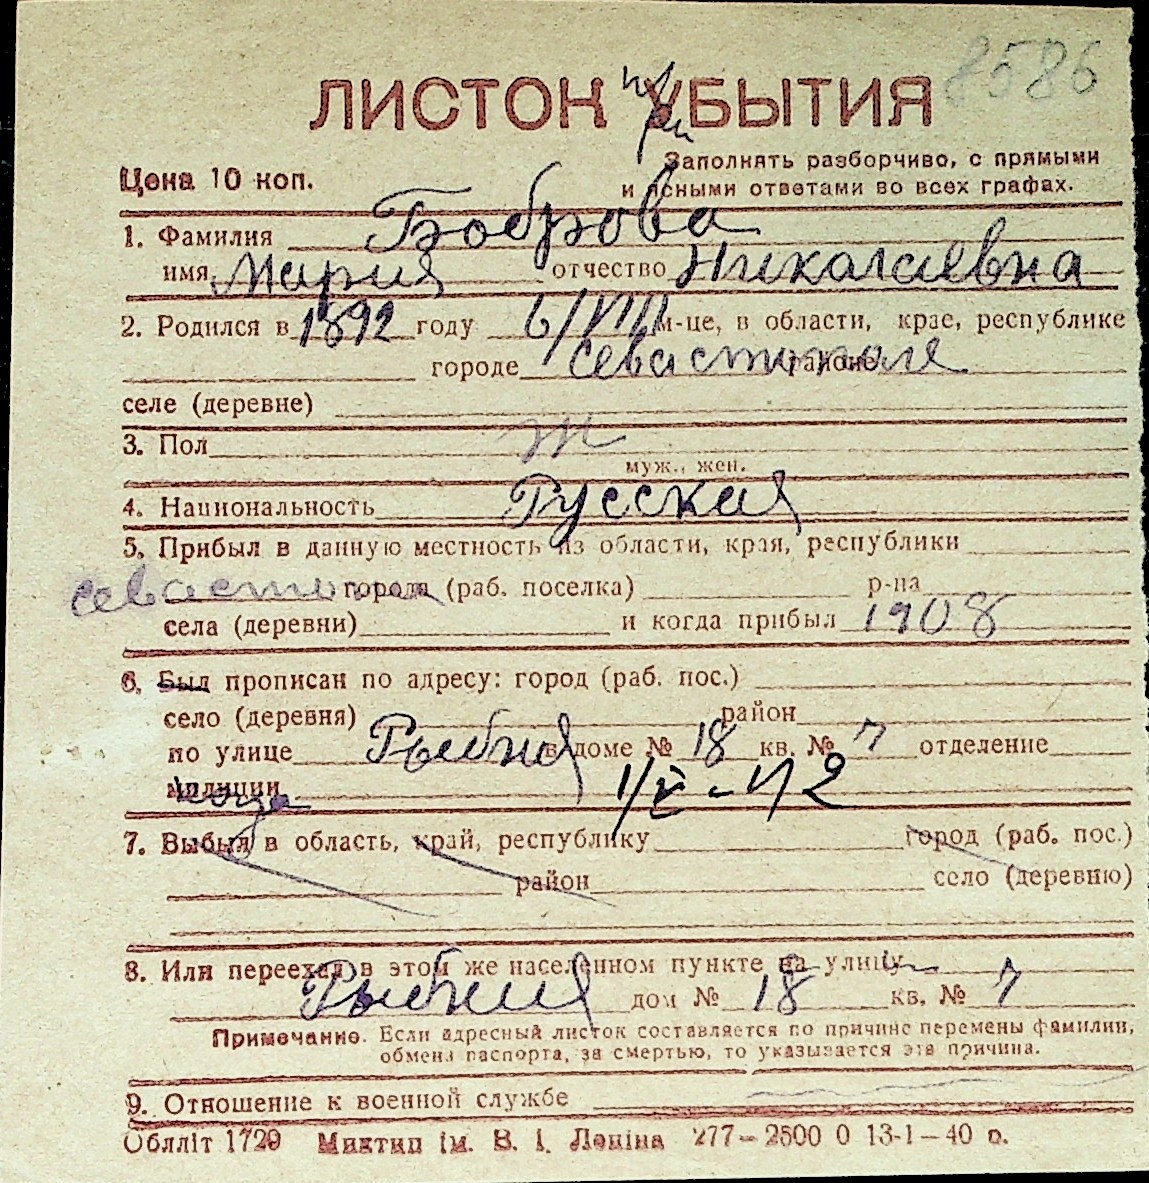 8586
ЛИСТОК УБЫТИЯ
при
Цена 10 коп.
Заполнять разборчиво, с прямыми
и ясными ответами во всех графах.
1. Фамилия Боброва
имя Мария отчество Николаевна
2. Родился в 1892 году 6/VIII м-це, в области, крае, республике
городе Севастополе районе
селе (деревне)
3. Пол ж
муж., жен.
4. Национальность Русская
5. Прибыл в данную местность из области, края, республики
города (раб. поселка) р-на
села (деревни) и когда прибыл 1908
6. Был прописан по адресу: город (раб. пос.)
село (деревня) район
по улице Рыбная в доме № 18 кв. № 7 отделение
милиции
когда
7. Выбыл в область, край, республику город (раб. пос.)
район село (деревню)
8. Или переехал в этом же населенном пункте на улицу
Рыбная дом № 18 кв. № 7
Примечание. Если адресный листок составляется по причине перемены фамилии,
обмена паспорта, за смертью, то указывается эта причина.
9. Отношение к военной службе
Обллiт 1729 Миктип iм. В. I. Ленiна 277–2500 0 13-1–40 р.